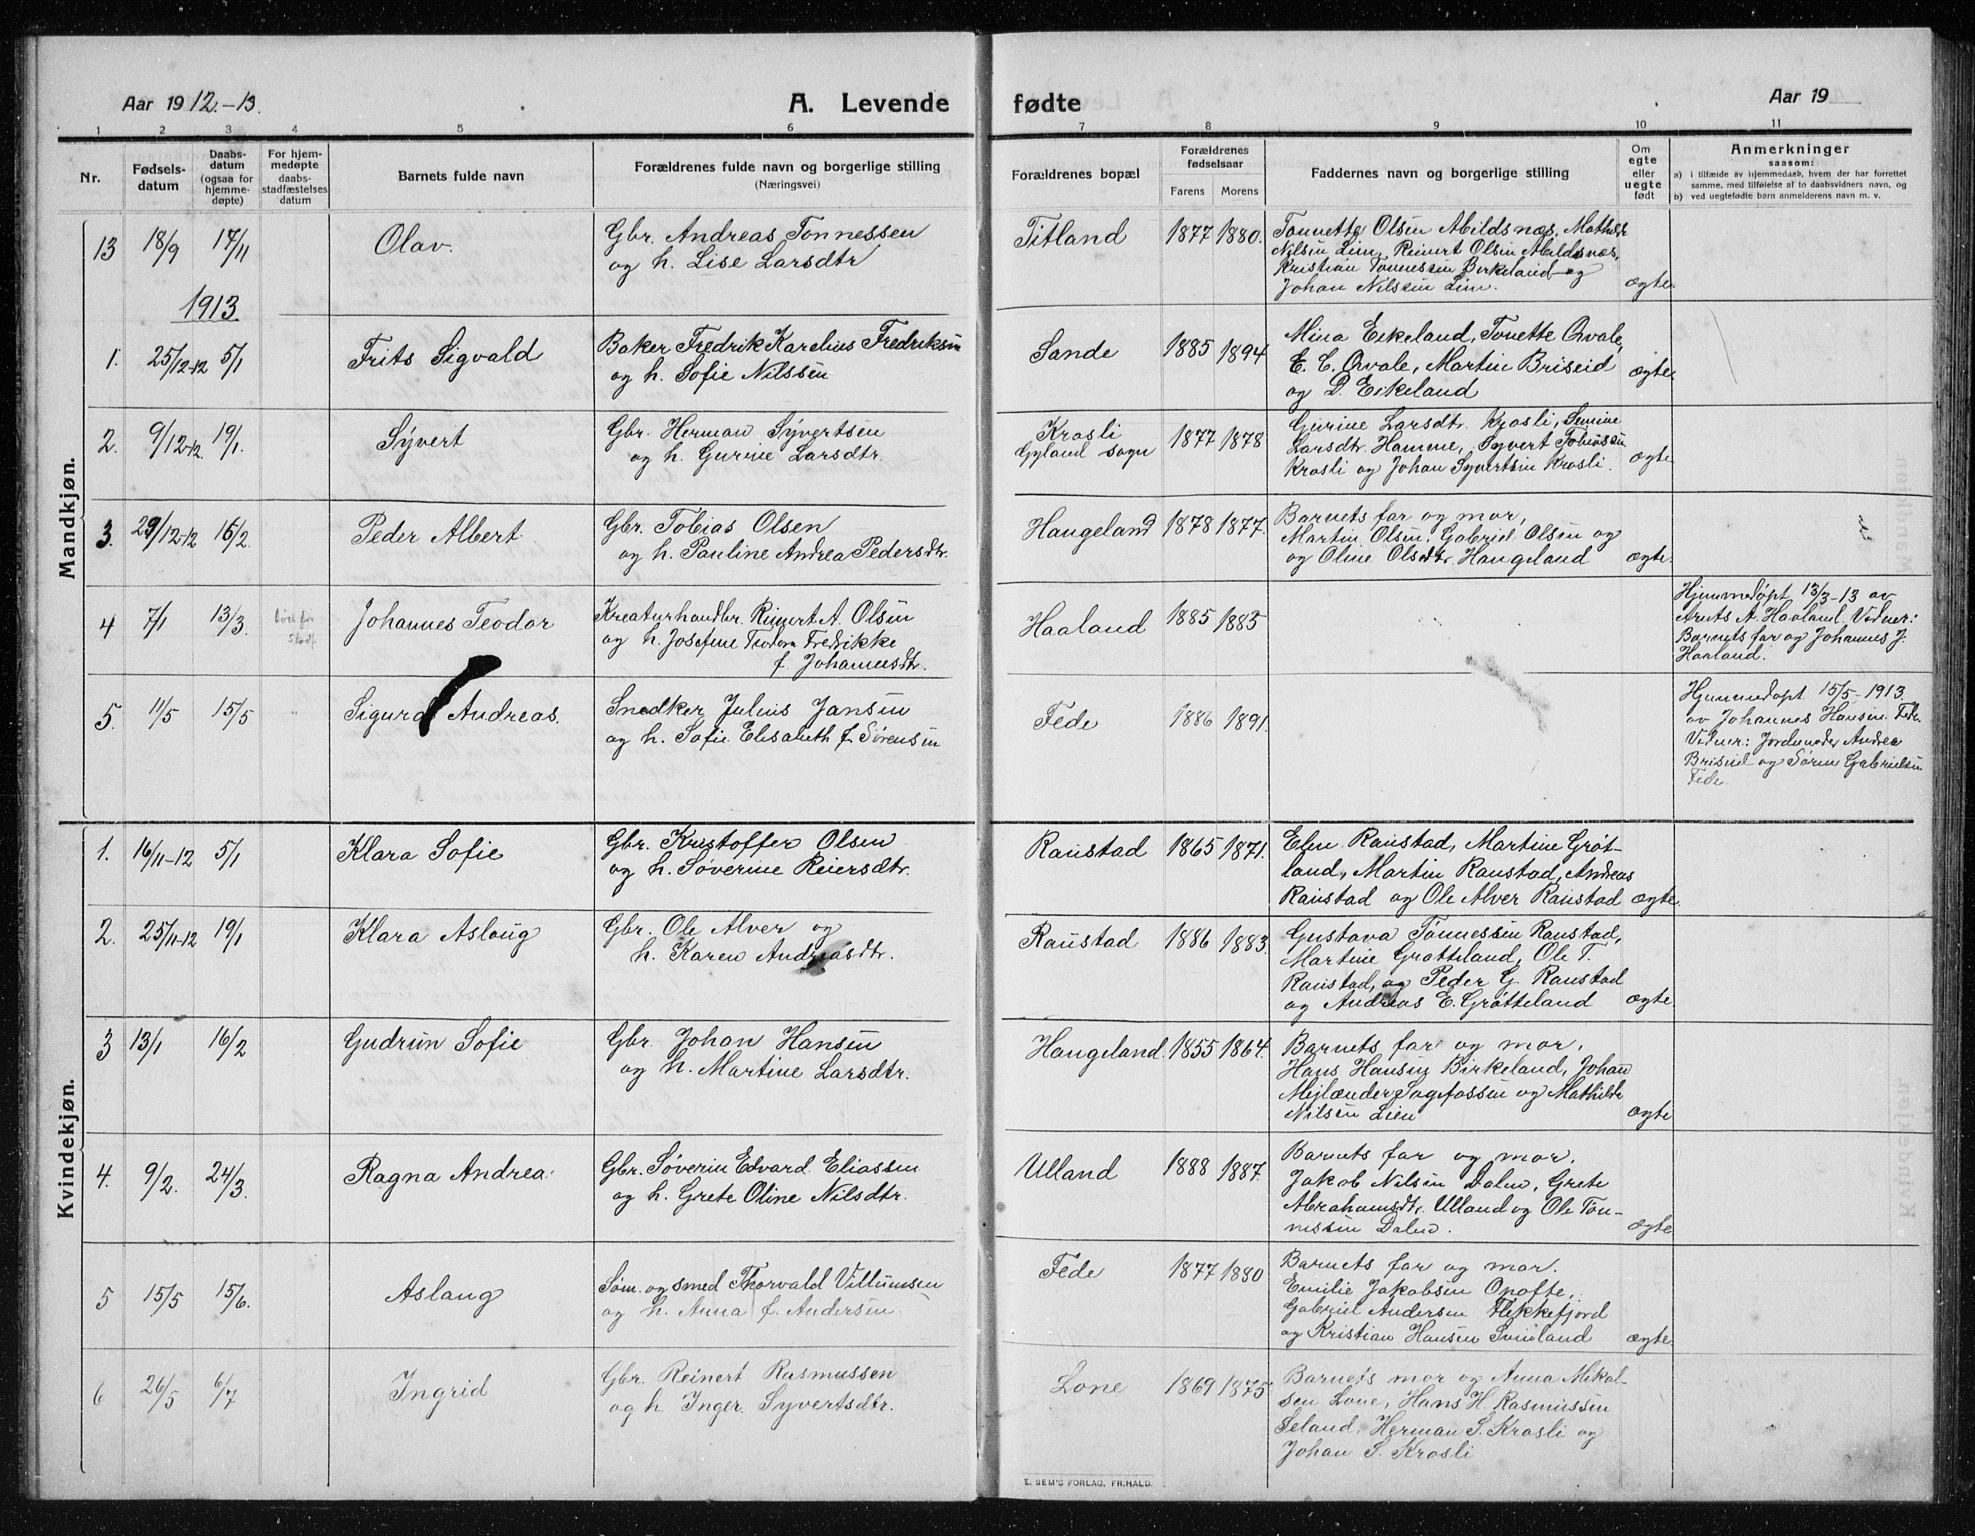 Aar 1912.-13.
A. Levende fødte
Aar 19
1 2 3 4 5 6 7 8 9 10 11
Nr.
Fødsels-
datum
Daabs-
datum
(ogsaa for
hjemme-
døpte)
For hjem-
medøpte
daabs-
stadfæstelses
datum
Barnets fulde navn
Forældrenes fulde navn og borgerlige stilling
(Næringsvei)
Forældrenes bopæl
Forældrenes
fødselsaar
Farens Morens
Faddernes navn og borgerlige stilling
Om
egte
eller
uegte
født
Anmerkninger
saasom:
a) i tilfælde av hjemmedaab, hvem der har forrettet
samme, med tilføielse af to daabsvidners navn, og
b) ved uegtefødte barn anmelderens navn m. v.
Mandkjøn.
13 18/9 17/11 Olav.
Gbr. Andreas Tønnessen
og h. Lise Larsdtr
Titland 1877 1880.
Tonnette Olsen Abildsnæs, Mathilde
Nilsen Lien, Reinert Olsen Abildsnæs,
Kristian Tønnessen Birkeland og
Johan Nilsen Lien.
ægte
1913
1. 25/12-12 5/1 Frits Sigvald
Baker Fredrik Karelius Fredriksen
og h. Sofie Nilssen
Sande 1885 1894
Mina Eikeland, Tonette Qvale,
E. C. Qvale, Martin Briseid
og P. Eikeland
ægte
2. 9/12-12. 19/1. Syvert
Gbr. Herman Syvertsen
og h. Gurine Larsdtr.
Krosli
Gyland sogn
1877 1878
Gurine Larsdtr. Krosli, Semine
Larsdtr. Hamme, Syvert Tobiassen
Krosli og Johan Syvertsen Krosli.
ægte
3. 29/12-12 16/2. Peder Albert
Gbr. Tobias Olsen
og h. Pauline Andrea Pedersdtr.
Haugeland 1878 1877.
Barnets far og mor,
Martin Olsen, Gabriel Olsen og
og Oline Olsdtr. Haugeland
ægte.
4 7/1 13/3. Johannes Teodor
Kreaturhandler Reinert A. Olsen
og h. Josefine Teodora Fredrikke
f. Johannesdtr.
Haaland 1885 1885
Hjemmedøpt 13/3-13 av
Arnts A. Haaland. Vidner:
Barnets far og Johannes J.
Haaland.
5. 11/5 15/5 Sigurd Andreas.
Snedker Julius Jansen
og h. Sofie Elisabeth f. Sørensen
Fede 1886 1891.
Hjemmedøpt 15/5-1913
av Johannes Hansen Fede
Vidner: Jordmoder Andrea
Briseid og Søren Gabrielsen
Fede
Kvindekjøn.
1. 16/11-12 5/1 Klara Sofie
Gbr. Kristoffer Olsen
og h. Søverine Reiersdtr.
Raustad 1865 1871.
Elen Raustad, Martine Grøt-
land, Martin Raustad, Andreas
Raustad og Ole Alver Raustad
ægte.
2. 25/11-12 19/1 Klara Aslaug
Gbr. Ole Alver og
h. Karen Andreasdtr.
Raustad 1886 1883.
Gustava Tønnessen Raustad,
Martine Grøtteland, Ole T.
Raustad, og Peder G. Raustad
og Andreas E. Grøtteland
ægte.
3 13/1 16/2 Gudrun Sofie
Gbr. Johan Hansen
og h. Martine Larsdtr.
Haugeland. 1855 1864.
Barnets far og mor,
Hans Hansen Birkeland, Johan
Mejlænder Sagefossen og Mathilde
Nilsen Lien
ægte
4. 9/2. 24/3. Ragna Andrea
Gbr. Søverin Edvard Eliassen
og h. Grete Oline Nilsdtr.
Ulland 1888 1887.
Barnets far og mor.
Jakob Nilsen Dalen, Grete
Abrahamsdtr. Ulland og Ole Tøn-
nessen Dalen.
ægte
5 15/5 15/6. Aslaug
Søm. og smed Thorvald Villumsen
og h. Anna f. Andersen.
Fede 1877 1880
Barnets far og mor.
Emilie Jakobsen Opofte,
Gabriel Andersen Flekkefjord
og Kristian Hansen Svinland
ægte
6 26/5 6/7 Ingrid
Gbr. Reinert Rasmussen
og h. Inger Syvertsdtr.
Lone 1869 1875
Barnets mor og Anna Mikal-
sen Lone, Hans H. Rasmussen
Seland, Herman S. Krosli og
Johan S. Krosli
E. SEM'S FORLAG, FR.HALD.